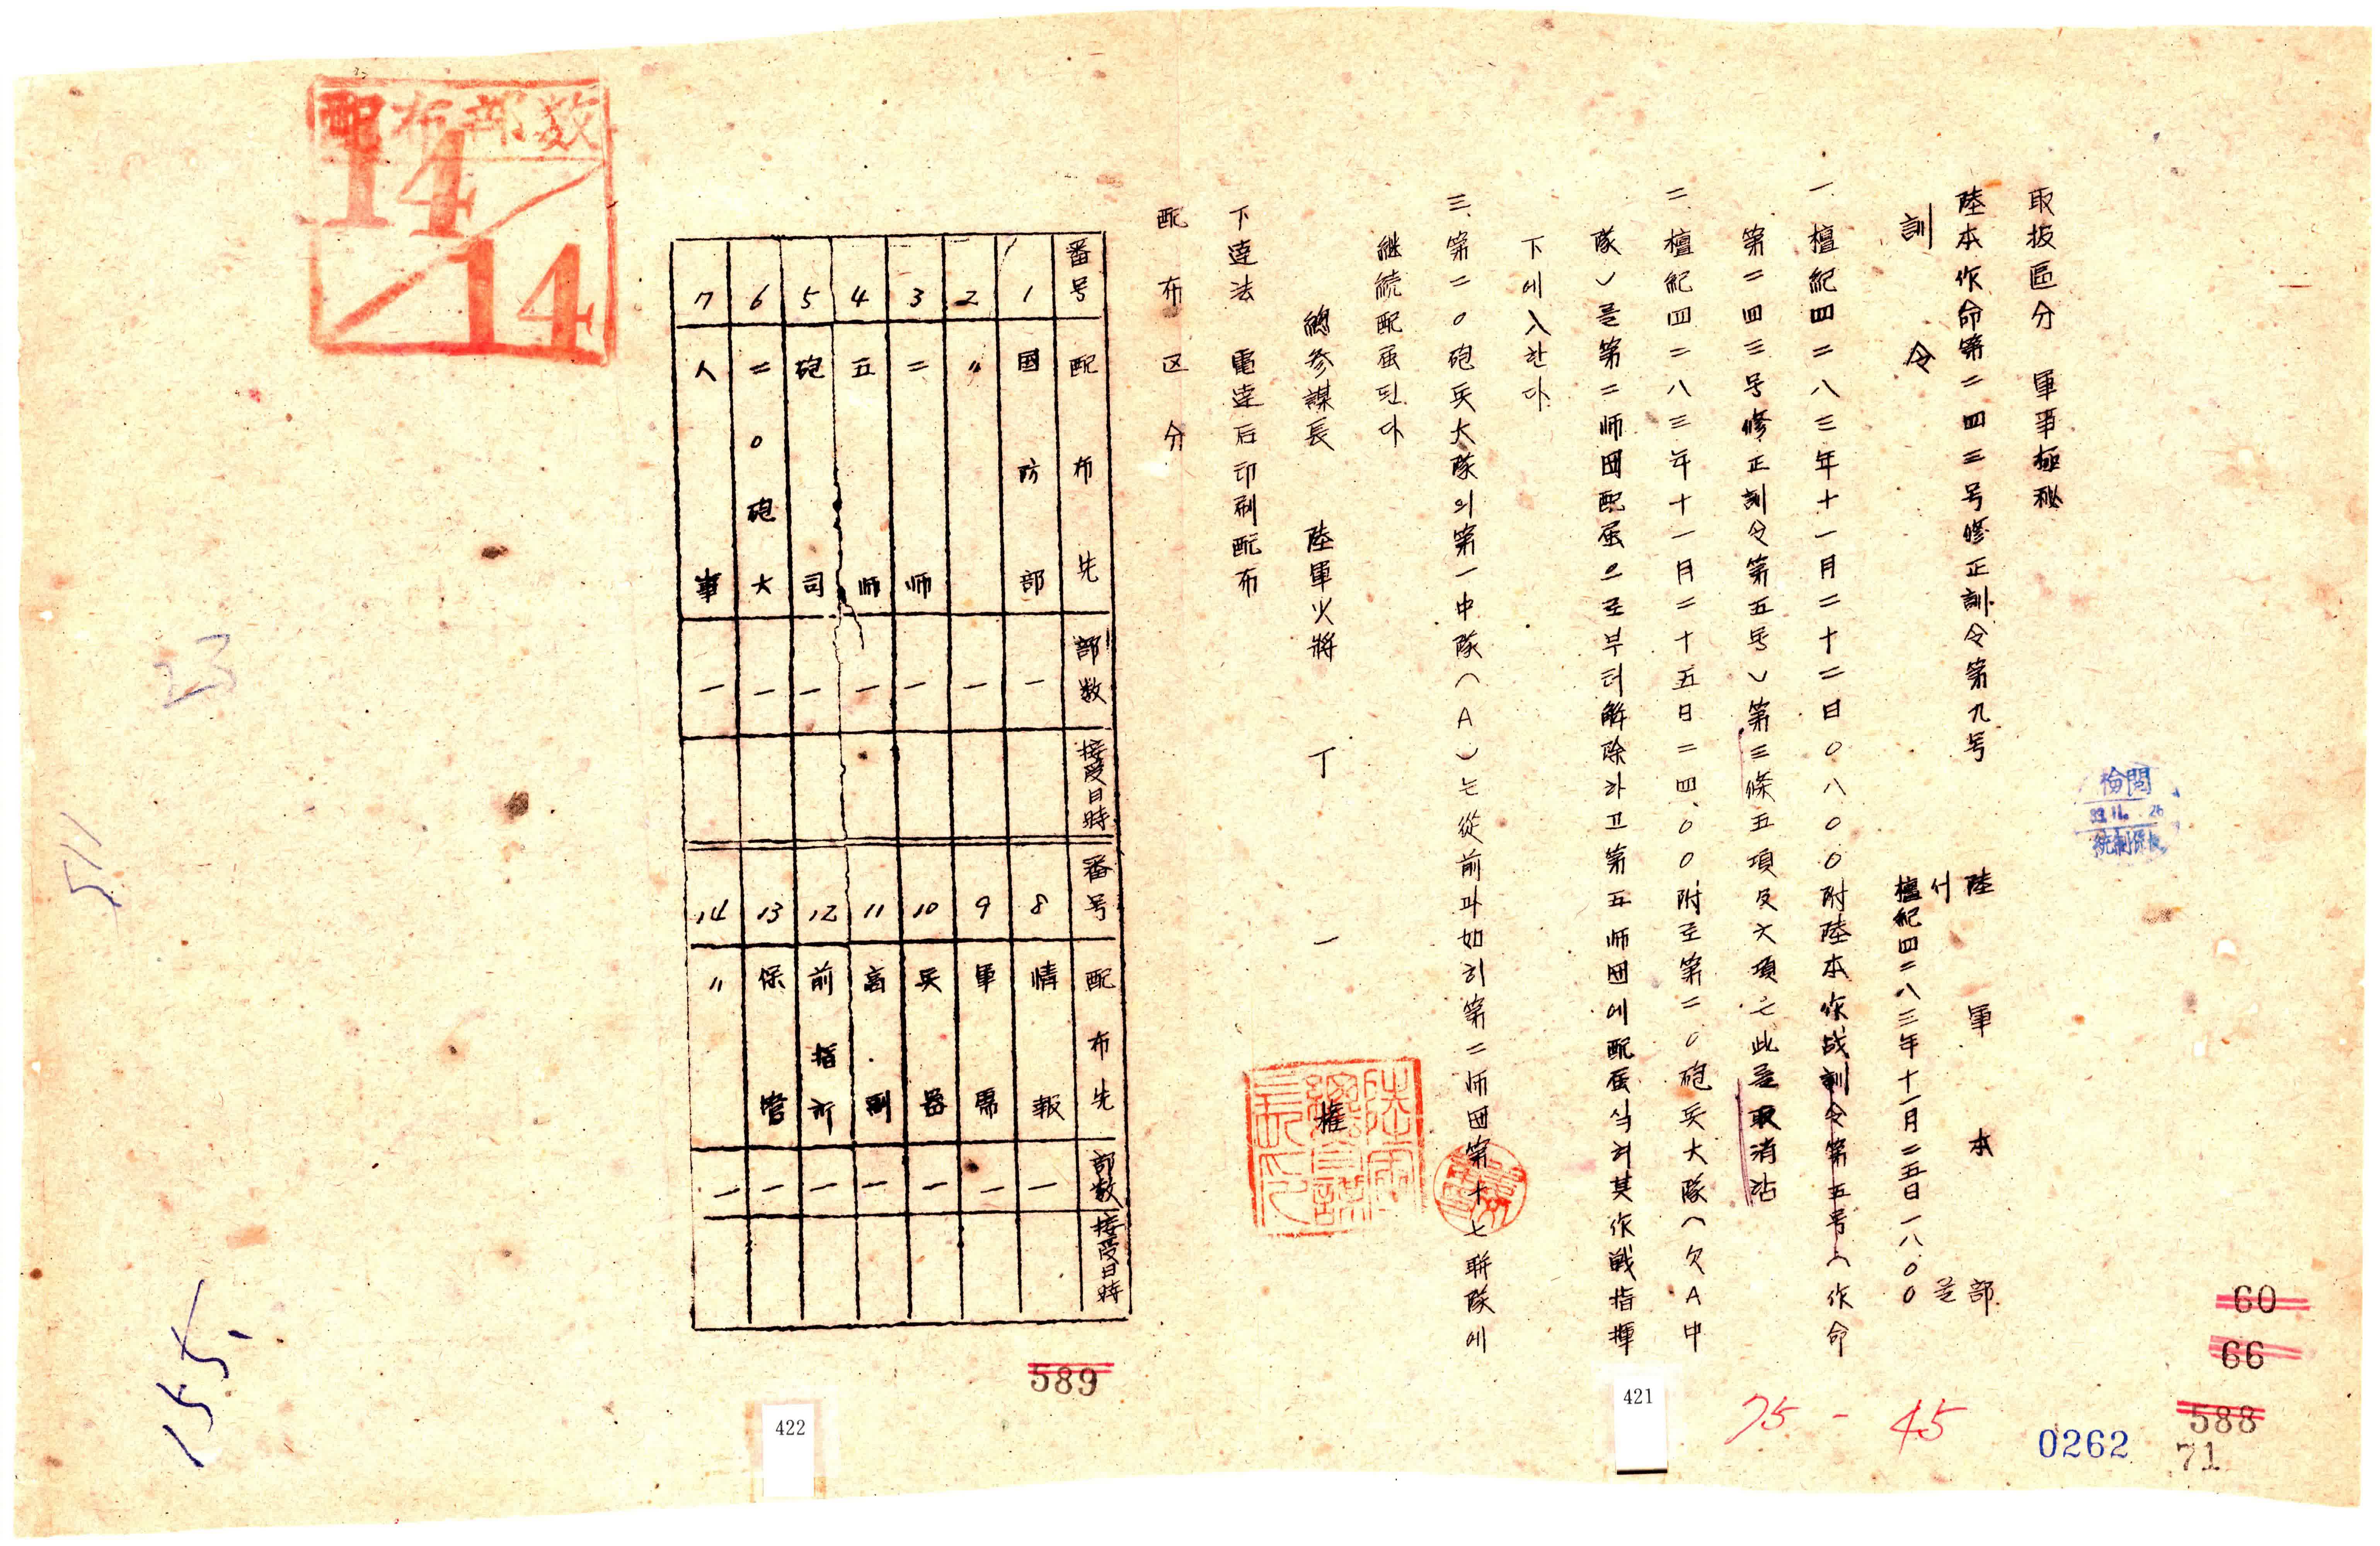 取扱區分　軍事極秘
陸本作命第二四三号修正訓令第九号
陸軍本部
서을
訓令
檀紀四二八三年十一月二五日一八.〇〇
一. 檀紀四二八三年十一月二十二日〇八〇〇附陸本作战訓令第五号(作命
第二四三号修正訓令第五号)第三條五項及六項은此를取消함
二. 檀紀四二八三年十一月二十五日二四.〇〇附로第二〇砲兵大隊(欠A中
隊)를第二师団配属으로부터解除하고第五师団에配属식혀其作戦指揮
下에入한다
三. 第二〇砲兵大隊의第一中隊(A)는從前과如히第二师団第十七聯隊에
継続配属된다
總参謀長　陸軍少將　丁一權
下達法　電達后印刷配布
配布区分
番号　配布先　部数　接受日時　番号　配布先　部数　接受日時
1　国防部　一　8　情報　一
2　〃　一　9　軍需　一
3　二师　一　10　兵器　一
4　五师　一　11　高副　一
5　砲司　一　12　前指所　一
6　二〇砲大　一　13　保管　一
7　人事　一　14　〃　一
配布部数
14
14
檢閱
83.11.26
陸軍總參謀長印
60
66
588
71
0262
75-45
421
589
422
155.
511
23